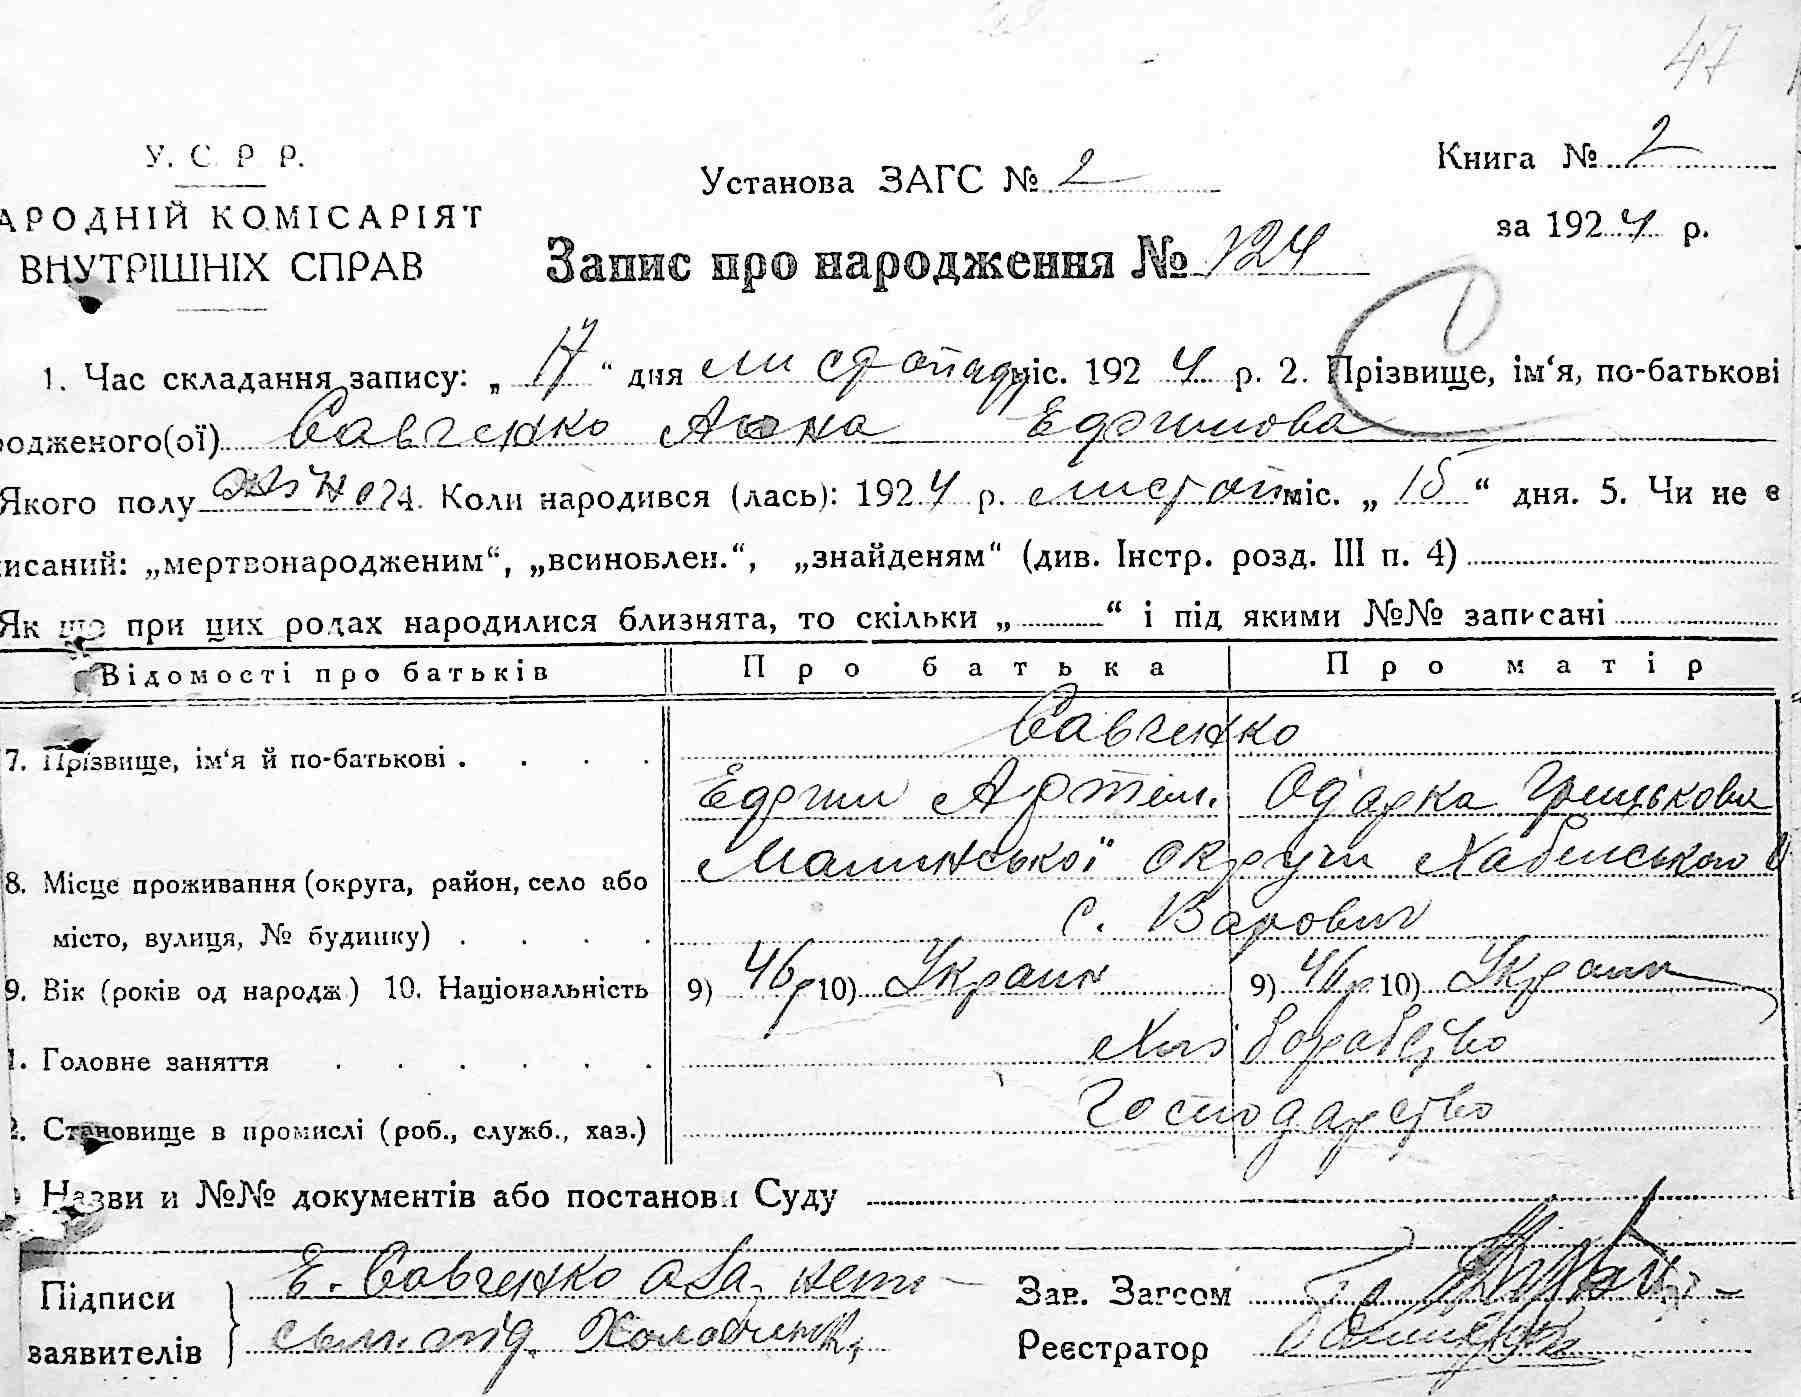 47
У. С. Р. Р.
АРОДНІЙ КОМІСАРІЯТ
ВНУТРІШНІХ СПРАВ
Установа ЗАГС № 2
Книга № 2
за 1924 р.
Запис про народження № 124
1. Час складання запису: „ 17 “ дня листопаду міс. 1924 р. 2. Прізвище, ім‘я, по-батькові
одженого(ої) Савченко Ганна Ефимова
Якого полу жіноч. 4. Коли народився (лась): 1924 р. листоп міс. „ 15 “ дня. 5. Чи не є
исаний: „мертвонародженим“, „всиновлен.“, „знайденям“ (див. Інстр. розд. III п. 4)
Як що при цих родах народилися близнята, то скільки „ “ і під якими №№ записані
Відомості про батьків Про батька Про матір
7. Прізвище, ім‘я й по-батькові . . . . Савченко
Ефим Артем. Одарка Грицькова
8. Місце проживання (округа, район, село або Малинської округи Хабенського
місто, вулиця, № будинку) . . . . с. Варовичі
9. Вік (років од народж.) 10. Національність 9) 46 р 10) Украин 9) 46 р 10) Украин
1. Головне заняття . . . . . . Хліборобство
2. Становище в промислі (роб., служб., хаз.) Господарство
Назви и №№ документів або постанови Суду
Підписи Е. Савченко а за непи-
заявителів сьм. під.
Зав. Загсом
Реєстратор